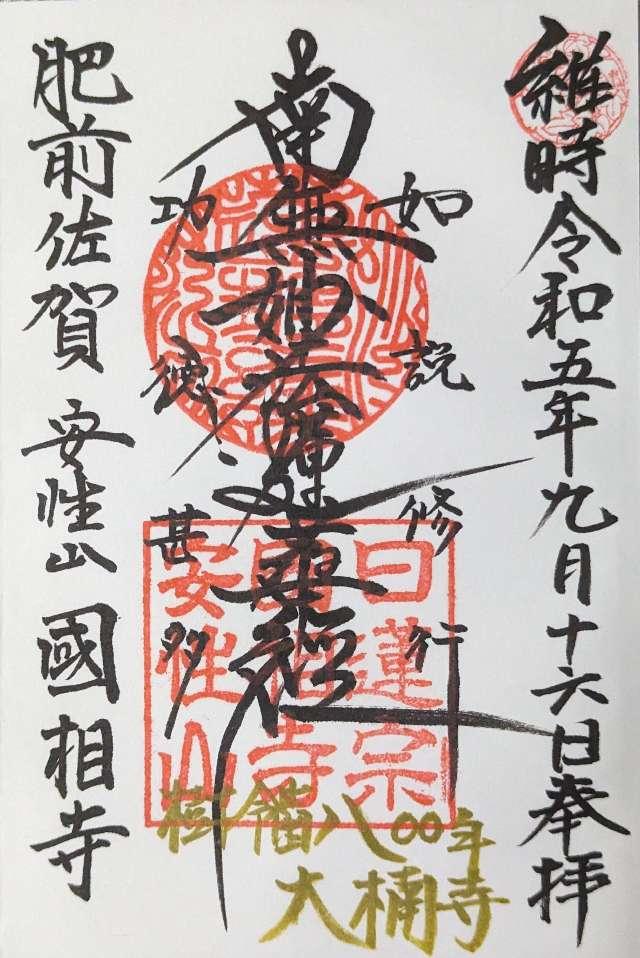 維時令和五年九月十六日奉拝
如説修行
南無妙法蓮華経
功徳甚多
肥前佐賀 安性山 國相寺
日蓮宗
國相寺
安性山
樹齢八〇〇年
大楠寺